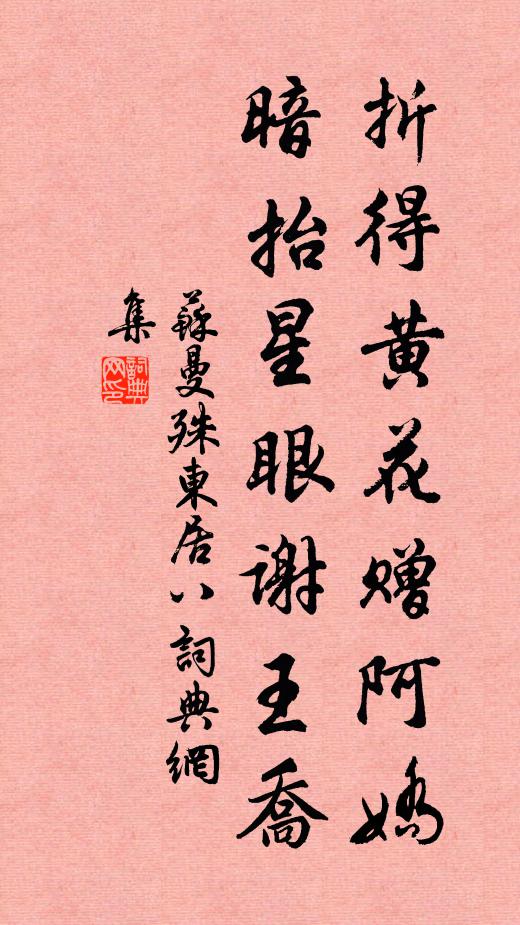 折得黄花赠阿嬌
暗抬星眼谢王喬
蘇曼殊東居八詞典網
集
詞典網印